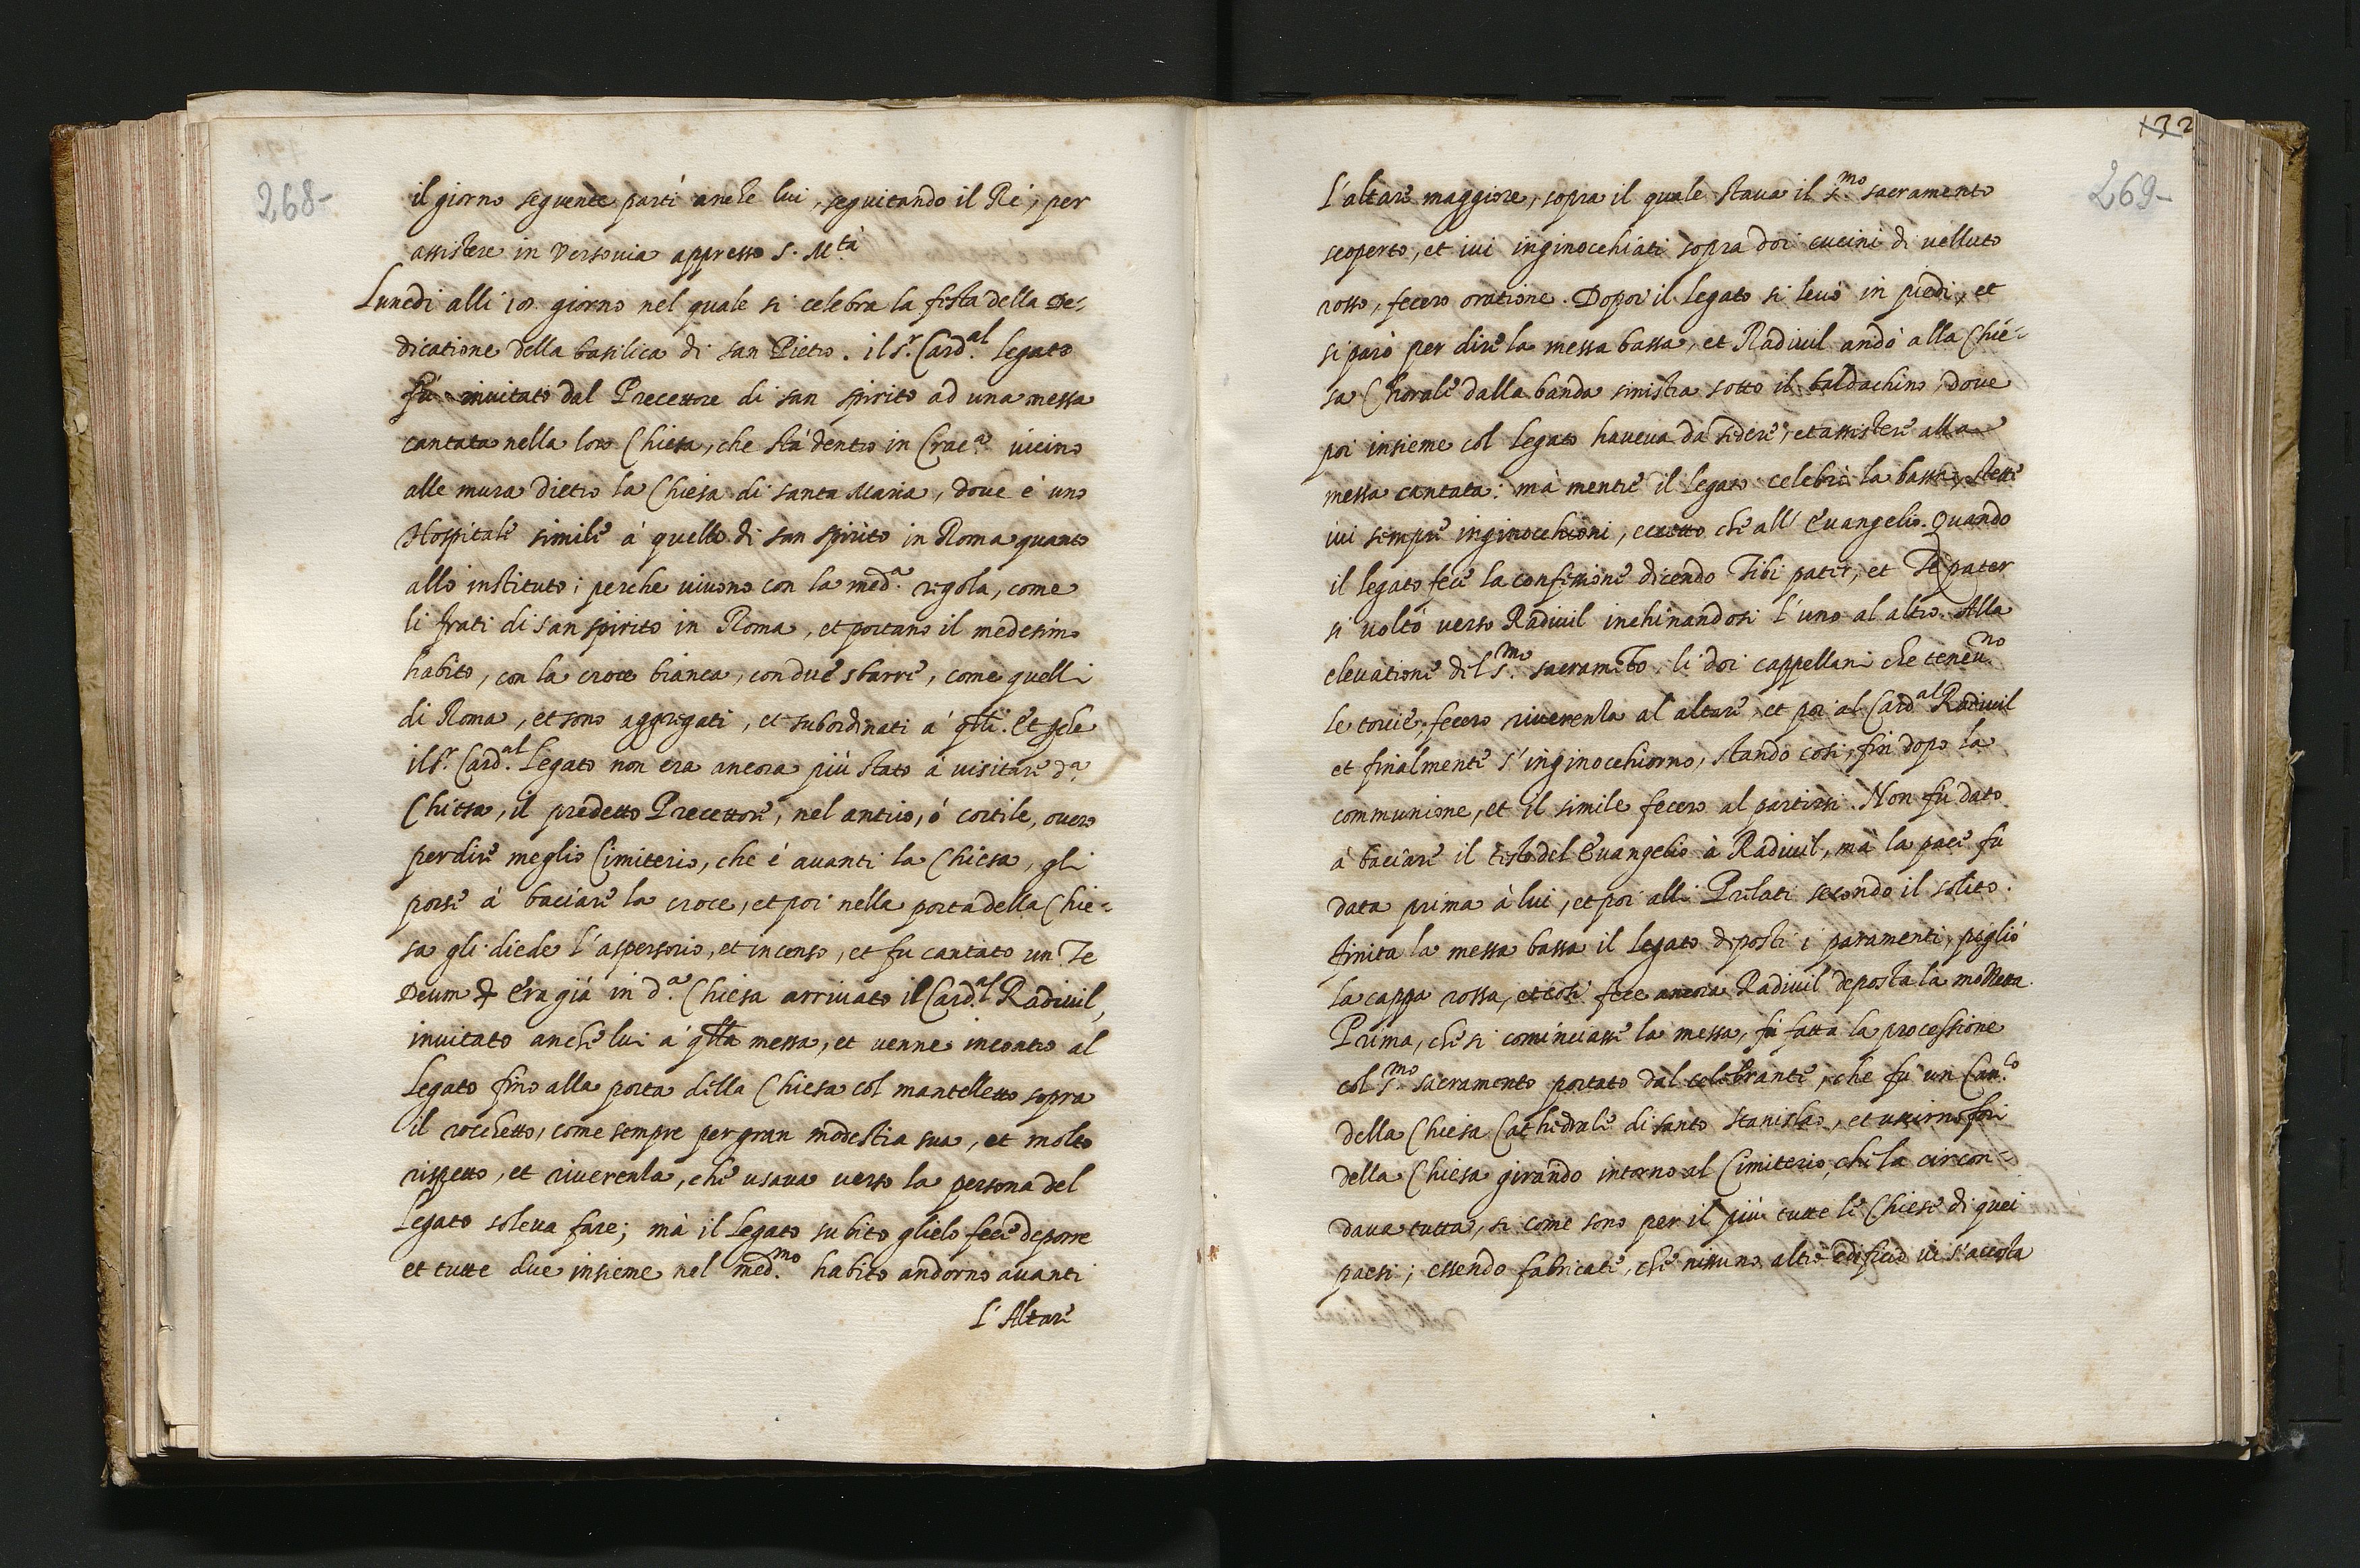 268-
il giorno seguente partì anche lui, seguitando il Rè, per
assistere in Versovia appresso S. M.tà
Lunedi alli 18. giorno nel quale si celebra la festa della De-
dicatione della basilica di san Pietro. il S.r Card.al Legato
fù invitato dal Precettore di san spirito ad una messa
cantata nella loro Chiesa, che stà dentro in Crac.a vicino
alle mura dietro la Chiesa di santa Maria, dove è uno
Hospitale simile à quello di san spirito in Roma quanto
allo instituto; perche vivono con la med.a regola, come
li frati di san spirito in Roma, et portano il medesimo
habito, con la croce bianca, con due sbarre, come quelli
di Roma, et sono aggregati, et subordinati à qlli. Et pche
il S.r Card.al Legato non era ancora più stato à visitare d.a
Chiesa, il predetto Precettore, nel antrio, ò cortile, overo
per dire meglio Cimiterio, che è avanti la Chiesa, gli
porse à baciare la croce, et poi nella porta della Chie-
sa gli diede l'aspersorio, et incenso, et fu cantato un Te
Deum & Era già in d.a Chiesa arrivato il Card.al Radivil,
invitato anche lui à qlla messa, et venne incontro al
Legato fino alla porta della Chiesa col mantelletto sopra
il rocchetto, come sempre per gran modestia sua, et molto
rispetto, et riverenza, che usava verso la persona del
Legato soleva fare; mà il Legato subito glielo fece deporre
et tutte due insieme nel med.mo habito andorno avanti
L'Altare
132
269-
L'altare maggiore, sopra il quale stava il S.mo sacramento
scoperto, et ivi inginocchiati sopra doi cucini di velluto
rosso, fecero oratione. Dopoi il Legato si levò in piedi, et
si parò per dire la messa bassa, et Radivil andò alla Chie-
sa Chorale dalla banda sinistra sotto il baldachino, dove
poi insieme col Legato haveva da sedere, et assistere alla
messa cantata: mà mentre il Legato celebrò la bassa, stette
ivi sempre inginocchioni, eccetto che all'Evangelio. Quando
il legato fece la confessione dicendo Tibi pater, et Te pater
si voltò verso Radivil inchinandosi l'uno al altro. Alla
elevatione del S.mo sacramto. li doi cappellani che tenev.no
le torcie, fecero riverenza al altare, et poi al Card.al Radivil
et finalmente s'inginocchiorno, stando così, fin dopo la
communione, et il simile fecero al partirsi. Non fù dato
à baciare il testo del Evangelio à Radivil, mà la pace fù
data prima à lui, et poi alli Prelati secondo il solito.
Finita la messa bassa il Legato deposti i paramenti, pigliò
la cappa rossa, et così fece ancora Radivil deposta la mozzetta.
Prima, che si cominciasse la messa, fù fatta la processione
col S.mo sacramento portato dal celebrante, che fù un Can.co
della Chiesa Cathedrale di santo Stanislao, et uscirno fori
della Chiesa girando intorno al Cimiterio, che la circon-
dava tutta, si come sono per il più tutte le Chiese di quei
paesi; essendo fabricate, che nissuno altro edificio vi s'accosta